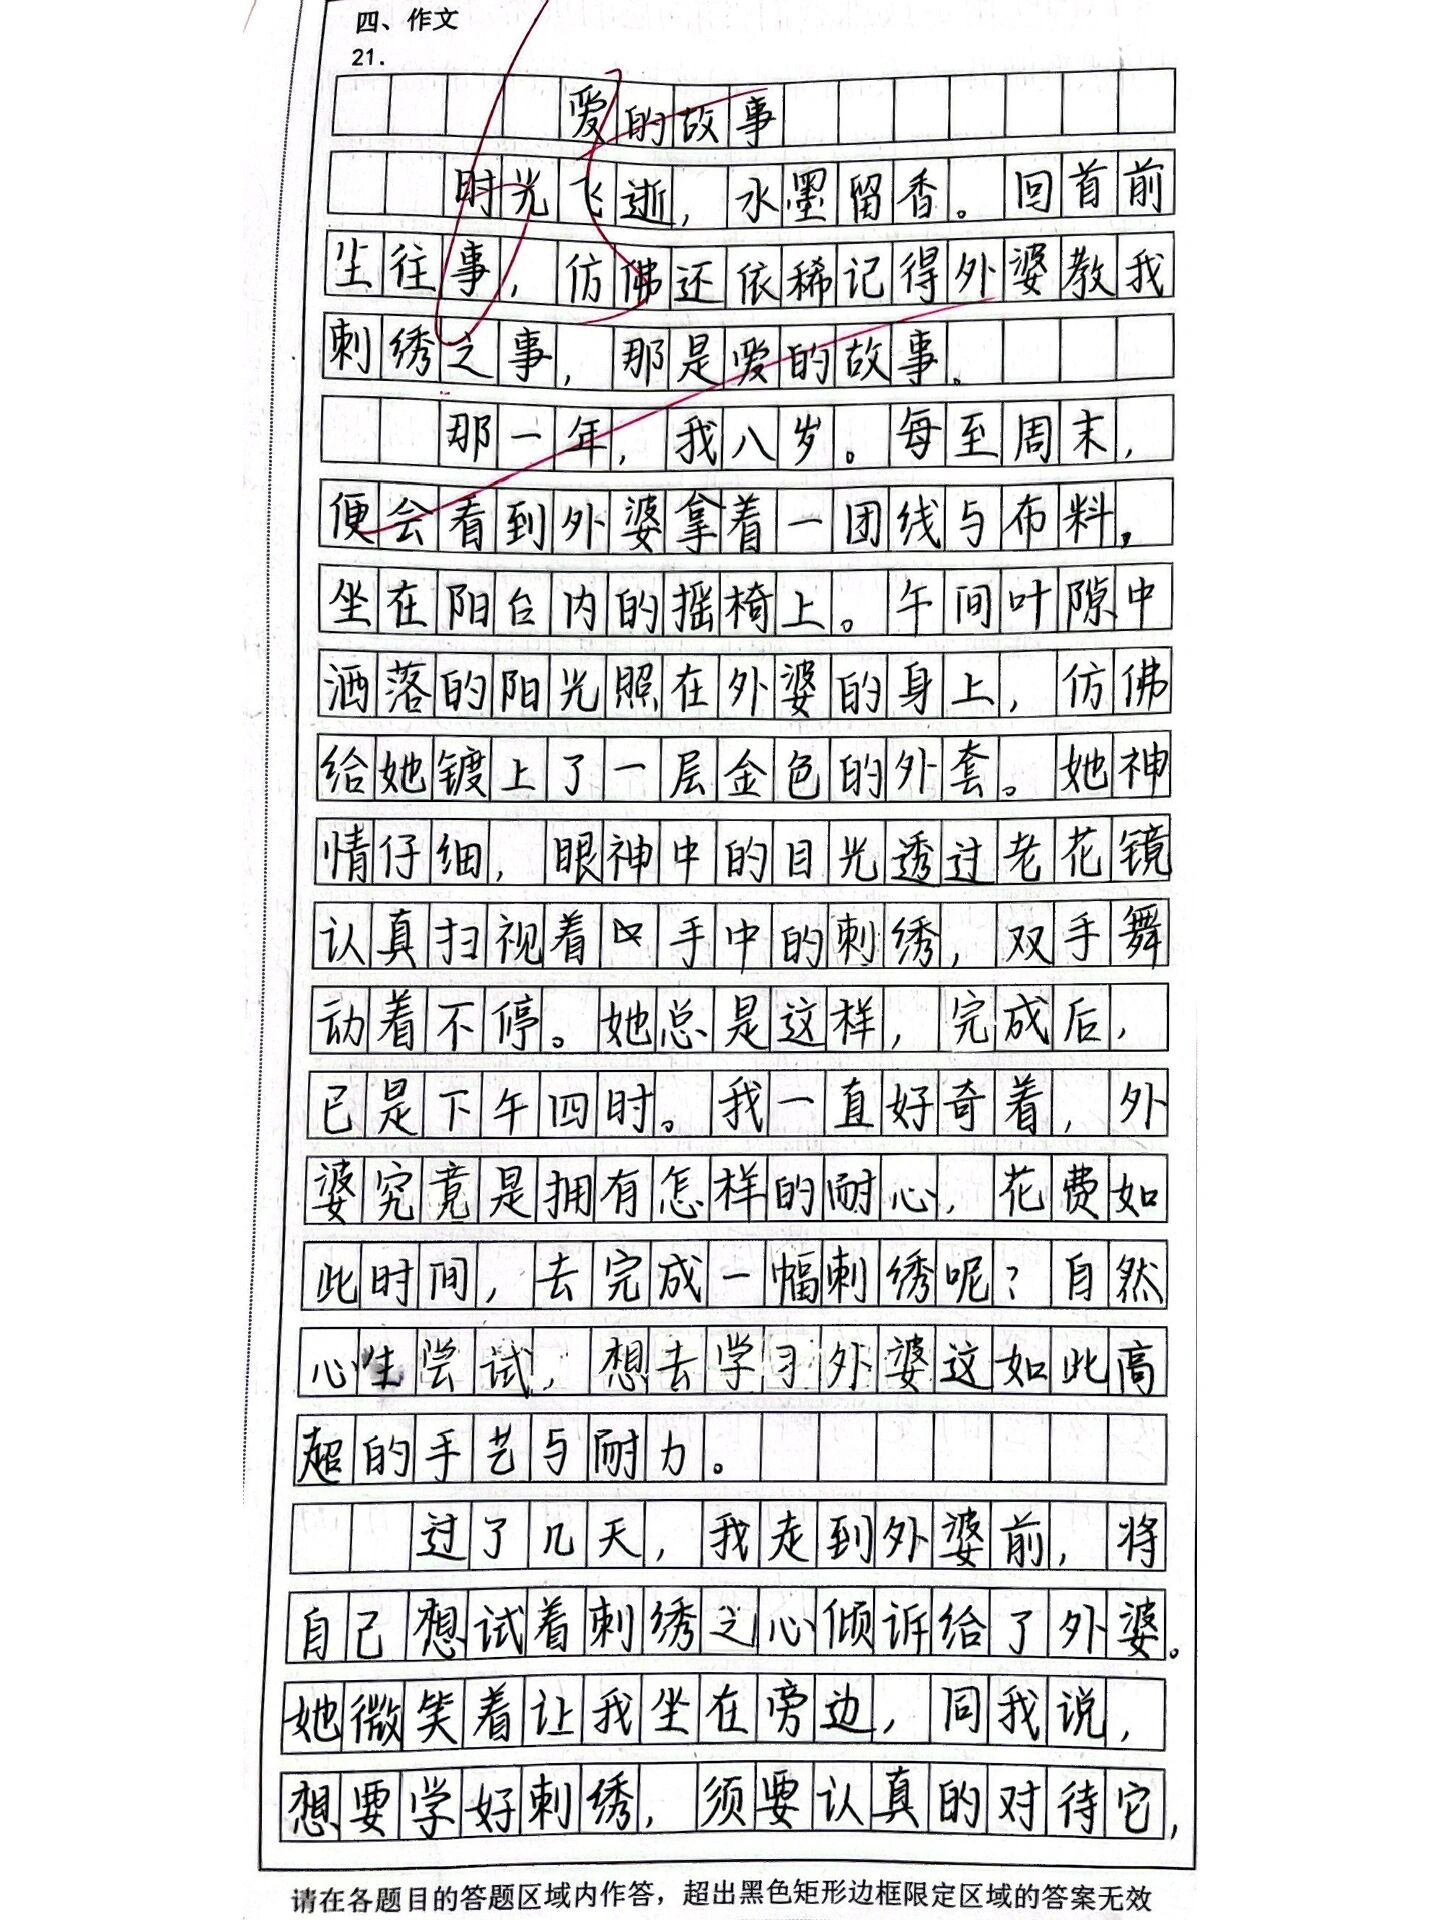 四、作文
21.
爱的故事
时光飞逝，水墨留香。回首前
尘往事，仿佛还依稀记得外婆教我
刺绣之事，那是爱的故事。
那一年，我八岁。每至周末，
便会看到外婆拿着一团线与布料，
坐在阳台内的摇椅上。午间叶隙中
洒落的阳光照在外婆的身上，仿佛
给她镀上了一层金色的外套。她神
情仔细，眼神中的目光透过老花镜
认真扫视着手中的刺绣，双手舞
动着不停。她总是这样，完成后，
已是下午四时。我一直好奇着，外
婆究竟是拥有怎样的耐心，花费如
此时间，去完成一幅刺绣呢？自然
心生尝试，想去学习外婆这如此高
超的手艺与耐力。
过了几天，我走到外婆前，将
自己想试着刺绣之心倾诉给了外婆。
她微笑着让我坐在旁边，同我说，
想要学好刺绣，须要认真的对待它，
请在各题目的答题区域内作答，超出黑色矩形边框限定区域的答案无效